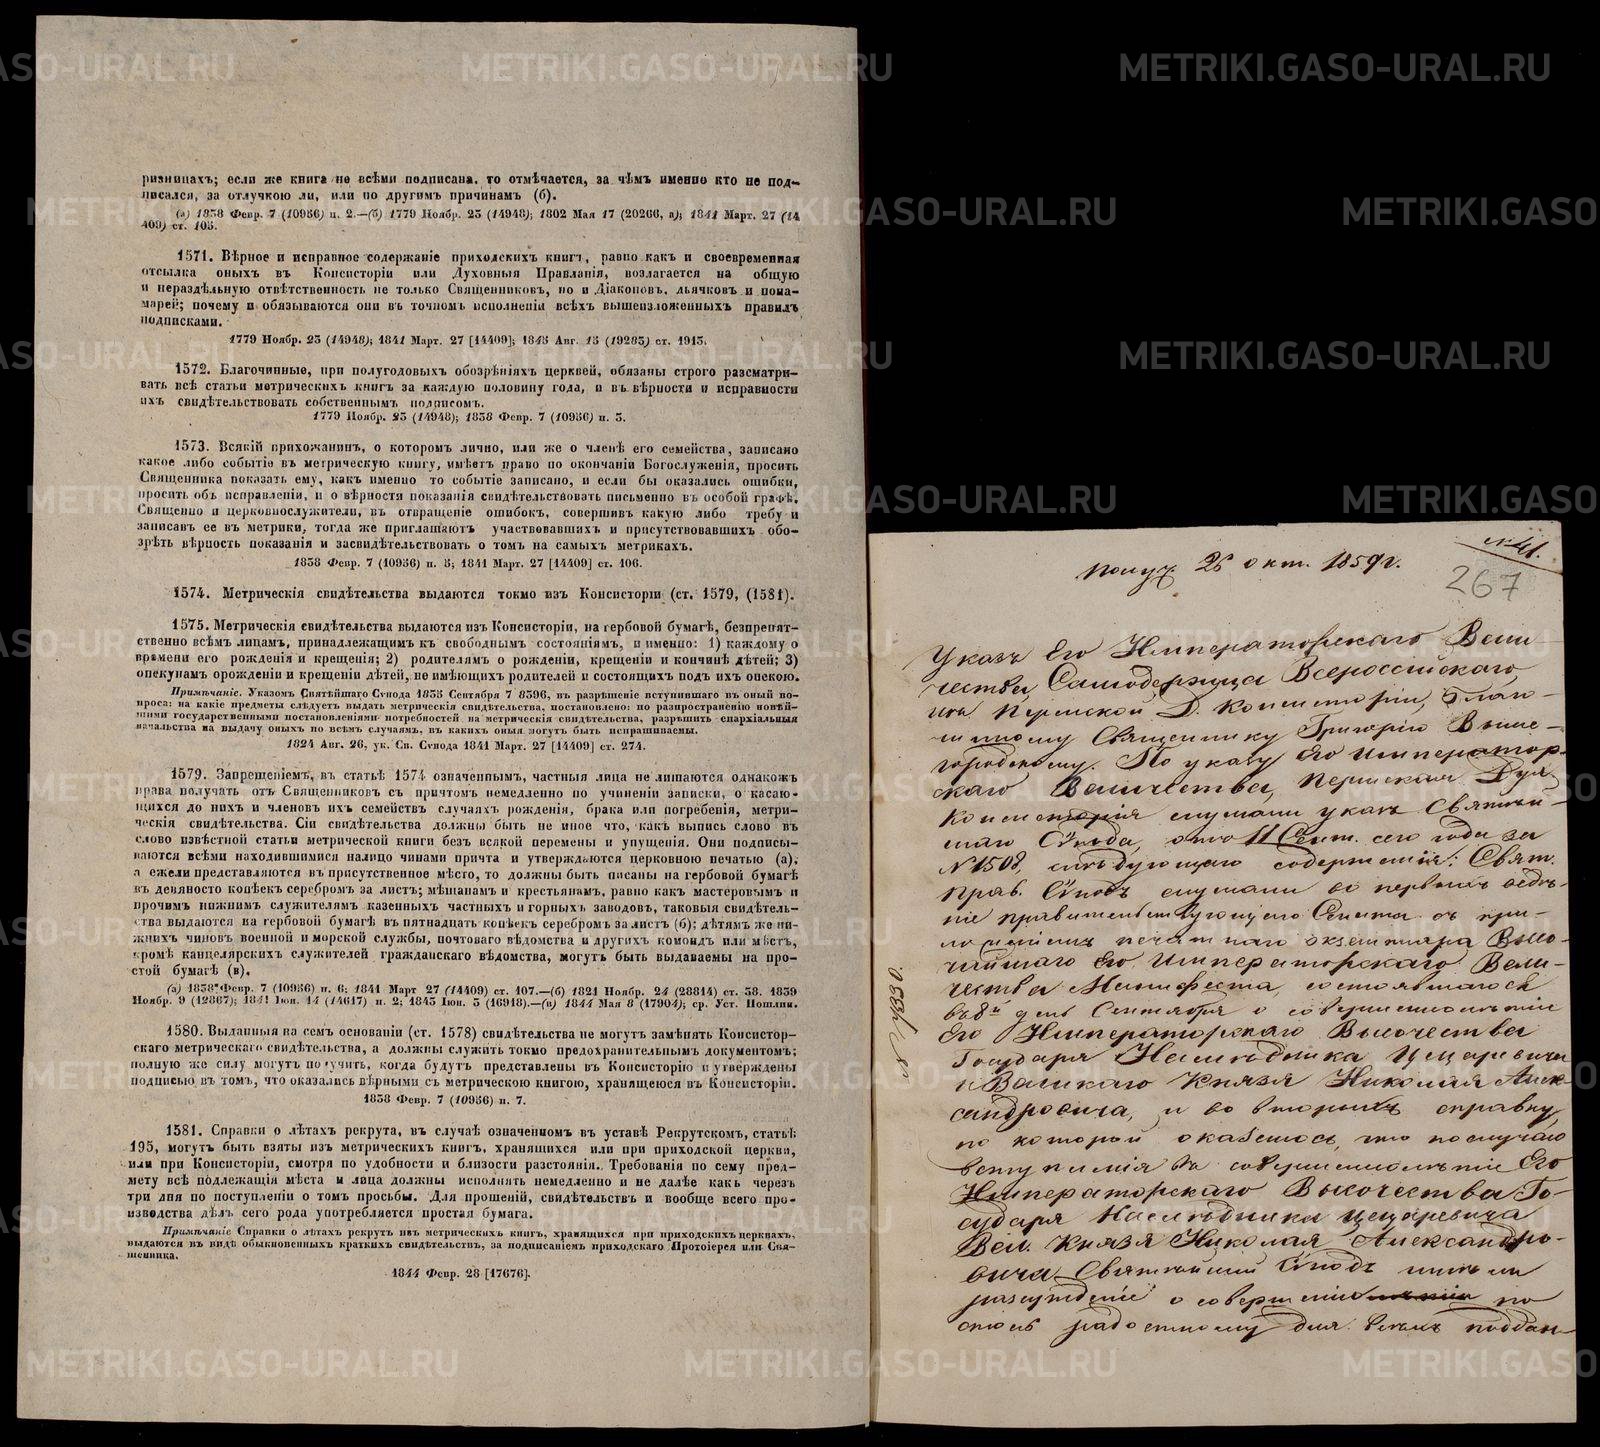 ризницахъ; если же книга не всѣми подписана, то отмѣчается, за чѣмъ именно кто не под-
писался, за отлучкою ли, или по другимъ причинамъ (б).
(а) 1838 Февр. 7 (10956) п. 2.—(б) 1779 Ноябр. 23 (14948); 1802 Мая 17 (20266, а); 1841 Март. 27 (14
409) ст. 105.
1571. Вѣрное и исправное содержаніе приходскихъ книгъ, равно какъ и своевременная
отсылка оныхъ въ Консисторіи или Духовныя Правланія, возлагается на общую
и нераздѣльную отвѣтственность не только Священниковъ, но и Діаконовъ, дьячковъ и пона-
марей; почему и обязываются они въ точномъ исполненіи всѣхъ вышеизложенныхъ правилъ
подписками.
1779 Ноябр. 23 (14948); 1841 Март. 27 [14409]; 1845 Авг. 15 (19283) ст. 1913.
1572. Благочинные, при полугодовыхъ обозрѣніяхъ церквей, обязаны строго разсматри-
вать всѣ статьи метрическихъ книгъ за каждую половину года, и въ вѣрности и исправности
ихъ свидѣтельствовать собственнымъ подписомъ.
1779 Ноябр. 23 (14948); 1838 Февр. 7 (10956) п. 3.
1573. Всякій прихожанинъ, о которомъ лично, или же о членѣ его семейства, записано
какое либо событіе въ метрическую книгу, имѣетъ право по окончаніи Богослуженія, просить
Священника показать ему, какъ именно то событіе записано, и если бы оказались ошибки,
просить объ исправленіи, и о вѣрности показанія свидѣтельствовать письменно въ особой графѣ.
Священно и церковнослужители, въ отвращеніе ошибокъ, совершивъ какую либо требу и
записавъ ее въ метрики, тогда же приглашаютъ участвовавшихъ и присутствовавшихъ обо-
зрѣть вѣрность показанія и засвидѣтельствовать о томъ на самыхъ метрикахъ.
1838 Февр. 7 (10956) п. 5; 1841 Март. 27 [14409] ст. 106.
1574. Метрическія свидѣтельства выдаются токмо изъ Консисторіи (ст. 1579, (1581).
1575. Метрическія свидѣтельства выдаются изъ Консисторіи, на гербовой бумагѣ, безпрепят-
ственно всѣмъ лицамъ, принадлежащимъ къ свободнымъ состояніямъ, и именно: 1) каждому о
времени его рожденія и крещенія; 2) родителямъ о рожденіи, крещеніи и кончинѣ дѣтей; 3)
опекунамъ орожденіи и крещеніи дѣтей, не имѣющихъ родителей и состоящихъ подъ ихъ опекою.
Примѣчаніе. Указомъ Святѣйшаго Сѵнода 1835 Сентября 7 8396, въ разрѣшеніе вступившаго въ оный во-
проса: на какіе предметы слѣдуетъ выдать метрическія свидѣтельства, постановлено: по распространенію новѣй-
шими государственными постановленіями потребностей на метрическія свидѣтельства, разрѣшить епархіальныя
начальства на выдачу оныхъ по всѣмъ случаямъ, въ какихъ оныя могутъ быть испрашиваемы.
1824 Авг. 26, ук. Св. Сѵнода 1841 Март. 27 [14409] ст. 274.
1579. Запрещеніемъ, въ статьѣ 1574 означеннымъ, частныя лица не лишаются однакожъ
права получать отъ Священниковъ съ причтомъ немедленно по учиненіи записки, о касаю-
щихся до нихъ и членовъ ихъ семействъ случаяхъ рожденія, брака или погребенія, метри-
ческія свидѣтельства. Сіи свидѣтельства должны быть не иное что, какъ выпись слово въ
слово извѣстной статьи метрической книги безъ всякой перемены и упущенія. Они подписы-
ваются всѣми находившимися налицо чинами причта и утверждаются церковною печатью (а),
а ежели представляются въ присутственное мѣсто, то должны быть писаны на гербовой бумагѣ
въ девяносто копѣекъ серебромъ за листъ; мѣщанамъ и крестьянамъ, равно какъ мастеровымъ и
прочимъ нижнимъ служителямъ казенныхъ частныхъ и горныхъ заводовъ, таковыя свидѣтель-
ства выдаются на гербовой бумагѣ въ пятнадцать копѣекъ серебромъ за листъ (б); дѣтямъ же ни-
жнихъ чиновъ военной и морской службы, почтоваго вѣдомства и другихъ командъ или мѣстъ,
кромѣ канцелярскихъ служителей гражданскаго вѣдомства, могутъ быть выдаваемы на про-
стой бумагѣ (в).
(а) 1838 Февр. 7 (10956) п. 6; 1841 Март 27 (14409) ст. 107.—(б) 1821 Ноябр. 24 (28814) ст. 38. 1839
Ноябр. 9 (12867); 1841 Іюн. 14 (14617) п. 2; 1843 Іюн. 3 (16918).—(в) 1844 Мая 8 (17904); ср. Уст. Пошлин.
1580. Выданныя на семъ основаніи (ст. 1578) свидѣтельства не могутъ замѣнять Консистор-
скаго метрическаго свидѣтельства, а должны служить токмо предохранительнымъ документомъ;
полную же силу могутъ получить, когда будутъ представлены въ Консисторію и утверждены
подписью въ томъ, что оказались вѣрными съ метрическою книгою, хранящеюся въ Консисторіи.
1838 Февр. 7 (10956) п. 7.
1581. Справки о лѣтахъ рекрута, въ случаѣ означенномъ въ уставѣ Рекрутскомъ, статьѣ
195, могутъ быть взяты изъ метрическихъ книгъ, хранящихся или при приходской церкви,
или при Консисторіи, смотря по удобности и близости разстоянія. Требованія по сему пред-
мету всѣ подлежащія мѣста и лица должны исполнять немедленно и не далѣе какъ черезъ
три дня по поступленіи о томъ просьбы. Для прошеній, свидѣтельствъ и вообще всего про-
изводства дѣлъ сего рода употребляется простая бумага.
Примѣчаніе Справки о лѣтахъ рекрутъ изъ метрическихъ книгъ, хранящихся при приходскихъ церквахъ,
выдаются въ видѣ обыкновенныхъ краткихъ свидѣтельствъ, за подписаніемъ приходскаго Протоіерея или Свя-
щенника.
1844 Февр. 28 [17676].
№ 41.
Получ. 26 окт. 1859 г.
267
Указъ Его Императорскаго Вели
чества, Самодержца Всероссійскаго,
изъ Пермской Д. Консисторіи, Благо-
чинному Священнику Григорію Выше-
городскому. По указу Его Император-
скаго Величества, Пермская Дух.
Консисторія слушали указъ Святѣй-
шаго Сѵнода, отъ 11 Сент. сего года за
№ 1508, слѣдующаго содержанія: Свят.
Прав. Сѵнодъ слушали во первыхъ вѣдѣ-
ніе правительствующаго Сената съ при-
ложеніемъ печатнаго экземпляра Высо-
чайшаго Его Императорскаго Вели-
чества Манифеста, состоявшагося
въ 8й день Сентября о совершеннолѣтіи
Его Императорскаго Высочества
Государя Наслѣдника Цесаревича
и Великаго Князя Николая Алек-
сандровича, и во вторыхъ справку,
по которой оказалось, что по случаю
вступленія въ совершеннолѣтіе Его
Императорскаго Высочества Го-
сударя Наслѣдника Цесаревича
Вел. Князя Николая Александро-
вича Святѣйшій Сѵнодъ имѣлъ
разсужденіе о совершеніи по
столь радостному для всѣхъ поддан-